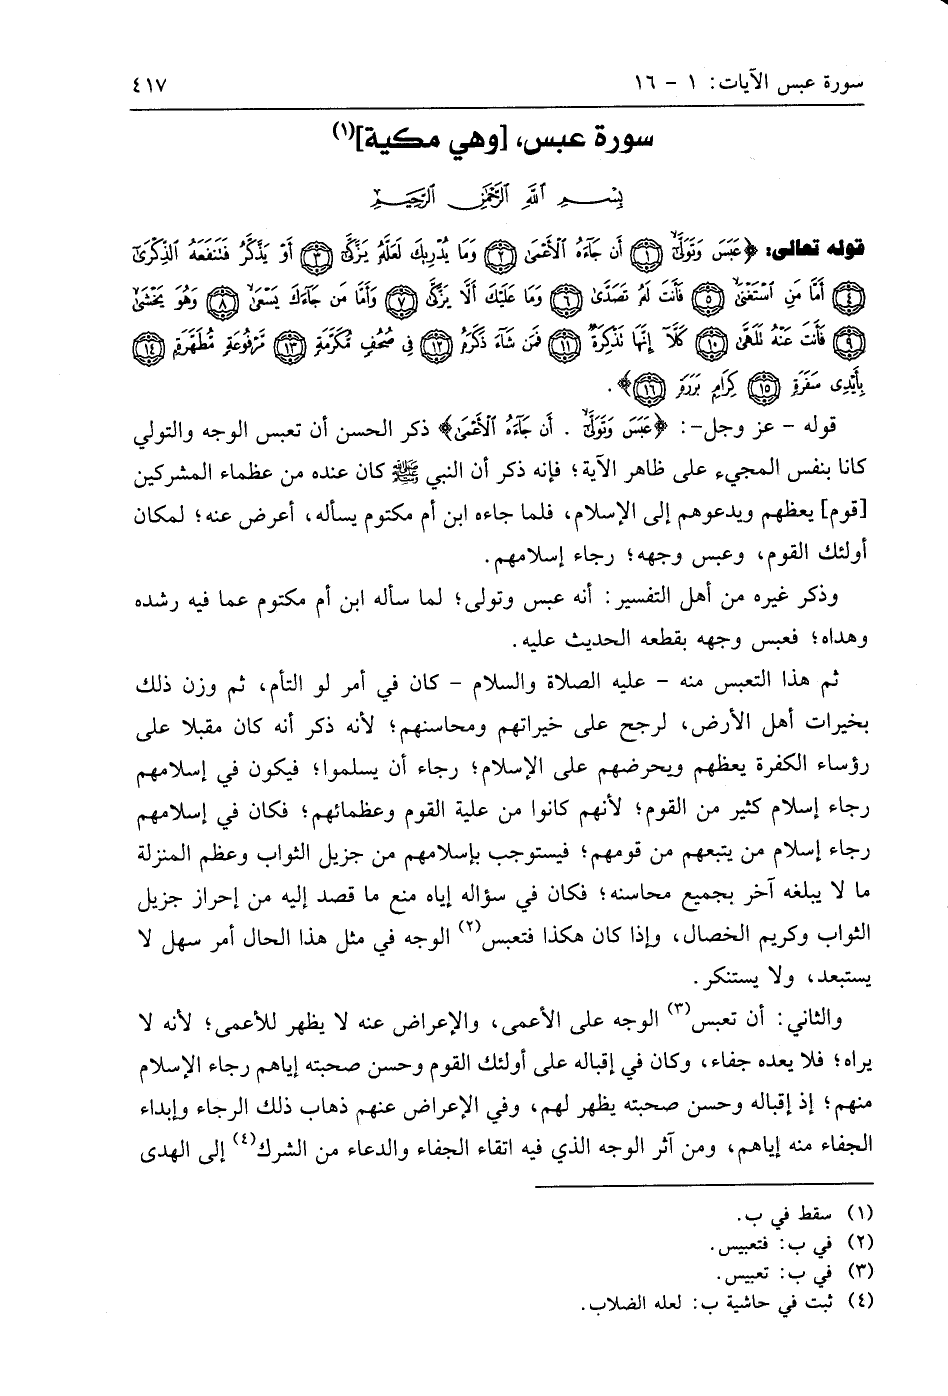 سورة عبس الآيات: ١ - ١٦ ٤١٧
سورة عبس، [وهي مكية](١)
بِسْمِ اللَّهِ الرَّحْمَٰنِ الرَّحِيمِ
قوله تعالى: ﴿عَبَسَ وَتَوَلَّىٰٓ ۝١ أَن جَآءَهُ ٱلْأَعْمَىٰ ۝٢ وَمَا يُدْرِيكَ لَعَلَّهُۥ يَزَّكَّىٰٓ ۝٣ أَوْ يَذَّكَّرُ فَتَنفَعَهُ ٱلذِّكْرَىٰٓ
۝٤ أَمَّا مَنِ ٱسْتَغْنَىٰ ۝٥ فَأَنتَ لَهُۥ تَصَدَّىٰ ۝٦ وَمَا عَلَيْكَ أَلَّا يَزَّكَّىٰ ۝٧ وَأَمَّا مَن جَآءَكَ يَسْعَىٰ ۝٨ وَهُوَ يَخْشَىٰ
۝٩ فَأَنتَ عَنْهُ تَلَهَّىٰ ۝١٠ كَلَّآ إِنَّهَا تَذْكِرَةٌ ۝١١ فَمَن شَآءَ ذَكَرَهُۥ ۝١٢ فِى صُحُفٍ مُّكَرَّمَةٍ ۝١٣ مَّرْفُوعَةٍ مُّطَهَّرَةٍۭ ۝١٤
بِأَيْدِى سَفَرَةٍ ۝١٥ كِرَامٍۭ بَرَرَةٍ ۝١٦﴾.
قوله - عز وجل-: ﴿عَبَسَ وَتَوَلَّىٰٓ . أَن جَآءَهُ ٱلْأَعْمَىٰ﴾ ذكر الحسن أن تعبس الوجه والتولي
كانا بنفس المجيء على ظاهر الآية؛ فإنه ذكر أن النبي ﷺ كان عنده من عظماء المشركين
[قوم] يعظهم ويدعوهم إلى الإسلام، فلما جاءه ابن أم مكتوم يسأله، أعرض عنه؛ لمكان
أولئك القوم، وعبس وجهه؛ رجاء إسلامهم.
وذكر غيره من أهل التفسير: أنه عبس وتولى؛ لما سأله ابن أم مكتوم عما فيه رشده
وهداه؛ فعبس وجهه بقطعه الحديث عليه.
ثم هذا التعبس منه - عليه الصلاة والسلام - كان في أمر لو التأم، ثم وزن ذلك
بخيرات أهل الأرض، لرجح على خيراتهم ومحاسنهم؛ لأنه ذكر أنه كان مقبلا على
رؤساء الكفرة يعظهم ويحرضهم على الإسلام؛ رجاء أن يسلموا؛ فيكون في إسلامهم
رجاء إسلام كثير من القوم؛ لأنهم كانوا من علية القوم وعظمائهم؛ فكان في إسلامهم
رجاء إسلام من يتبعهم من قومهم؛ فيستوجب بإسلامهم من جزيل الثواب وعظم المنزلة
ما لا يبلغه آخر بجميع محاسنه؛ فكان في سؤاله إياه منع ما قصد إليه من إحراز جزيل
الثواب وكريم الخصال، وإذا كان هكذا فتعبس(٢) الوجه في مثل هذا الحال أمر سهل لا
يستبعد، ولا يستنكر.
والثاني: أن تعبس(٣) الوجه على الأعمى، والإعراض عنه لا يظهر للأعمى؛ لأنه لا
يراه؛ فلا يعده جفاء، وكان في إقباله على أولئك القوم وحسن صحبته إياهم رجاء الإسلام
منهم؛ إذ إقباله وحسن صحبته يظهر لهم، وفي الإعراض عنهم ذهاب ذلك الرجاء وإبداء
الجفاء منه إياهم، ومن آثر الوجه الذي فيه اتقاء الجفاء والدعاء من الشرك(٤) إلى الهدى
(١) سقط في ب.
(٢) في ب: فتعبيس.
(٣) في ب: تعبيس.
(٤) ثبت في حاشية ب: لعله الضلاب.